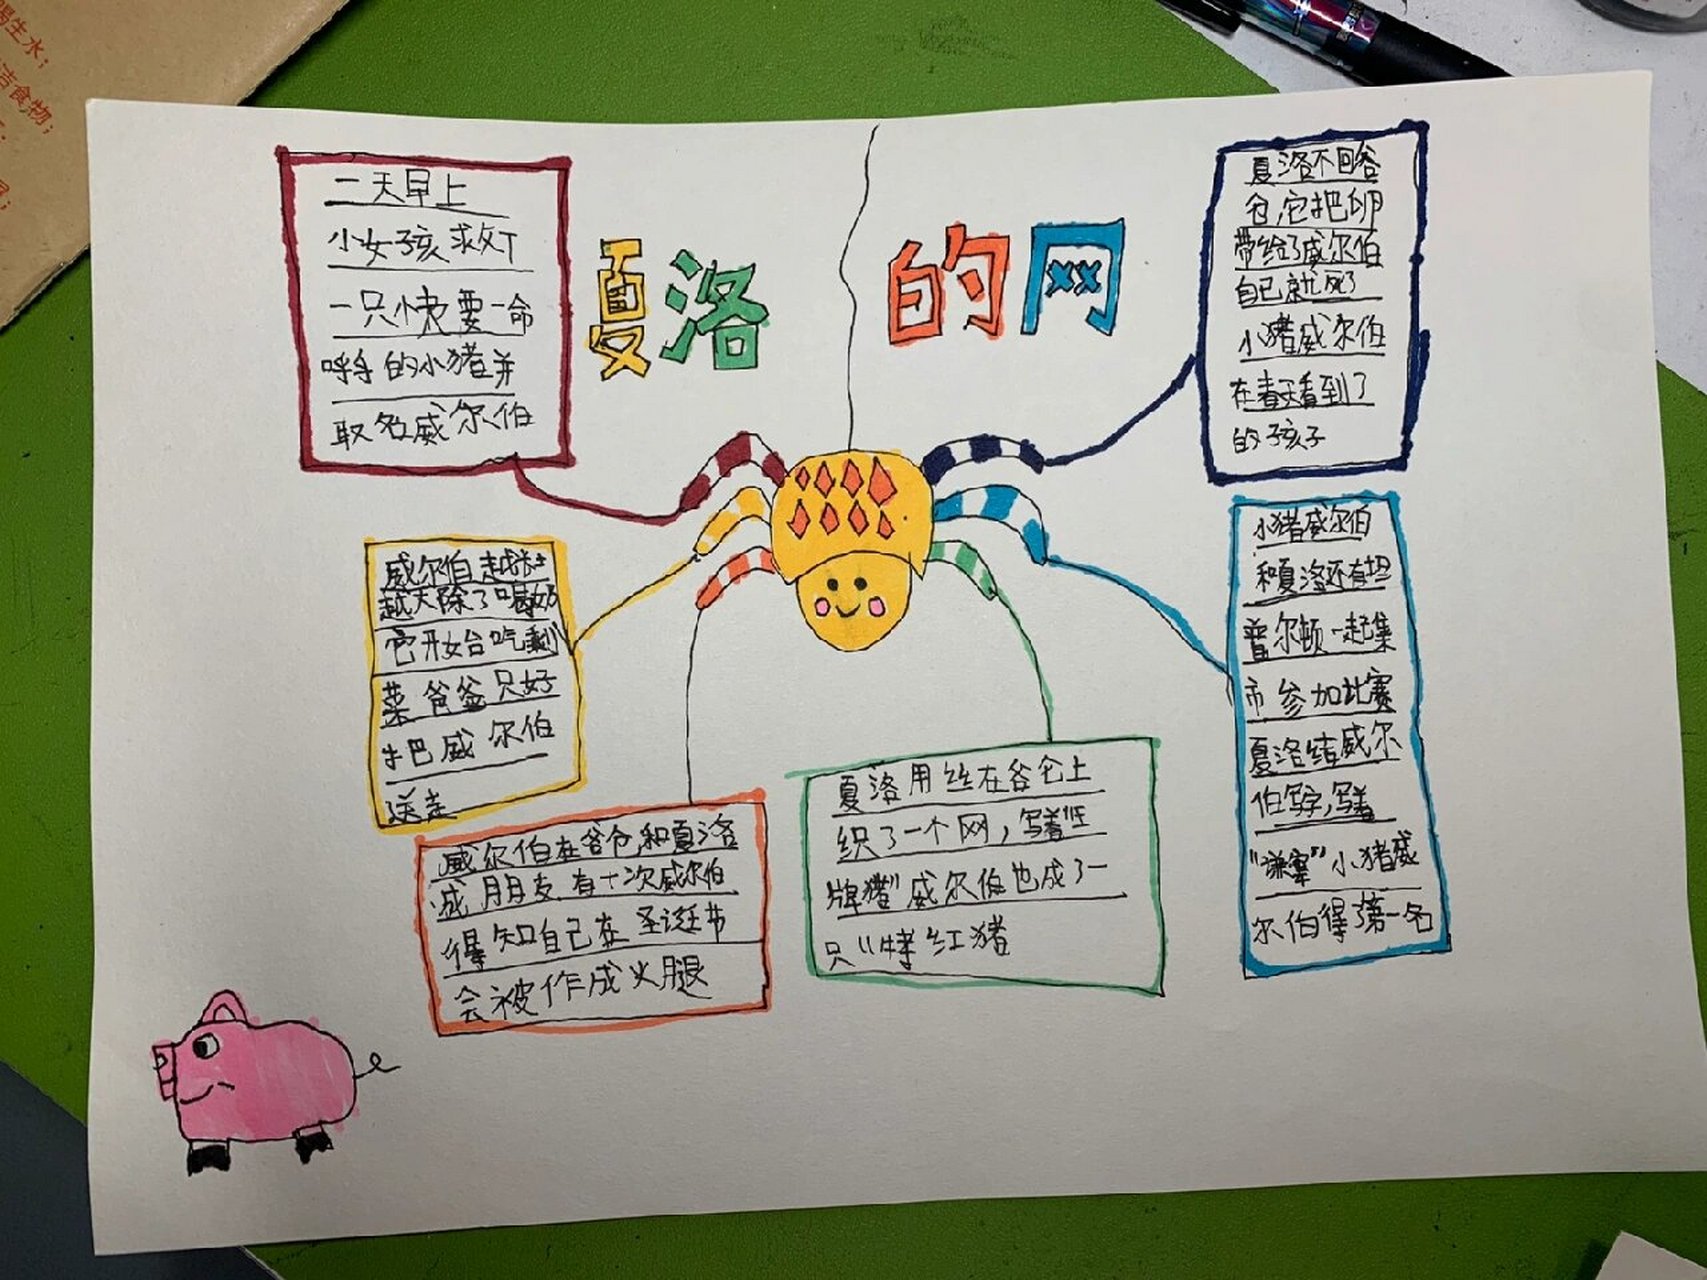 喝生水；
洁食物；
夏洛的网
二天早上
小女孩求文丁
一只快要一命
呼乎的小猪并
取名威尔伯
威尔伯越
越大除了喝奶
它开始吃剩
菜爸爸只好
把威尔伯
送走
威尔伯在谷仓,和夏洛
成朋友.有一次威尔伯
得知自己在圣诞节
会被作成火腿
夏洛用丝在谷仓上
织了一个网，写着
牌猪”威尔伯也成了一
只“红猪
小猪威尔伯
和夏洛还有坦
普尔顿一起集
市参加比赛
夏洛结威尔
伯写字,写着
“谦”小猪威
尔伯得了第一名
夏洛不回谷
仓,它把卵
带给了威尔伯
自己就死了
小猪威尔伯
在春天看到了
的孩子